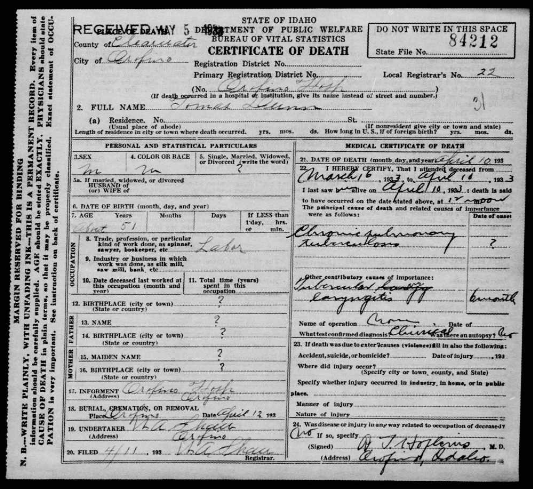 STATE OF IDAHO
RECEIVED MAY 5 1933
PLACE OF DEATH
DEPARTMENT OF PUBLIC WELFARE
BUREAU OF VITAL STATISTICS
CERTIFICATE OF DEATH
DO NOT WRITE IN THIS SPACE
State File No. 84212
County of Clearwater
City of Orofino
Registration District No.
Primary Registration District No.
Local Registrar's No. 22
(No. Orofino Hosp
(If death occurred in a hospital or institution, give its name instead of street and number.)
2. FULL NAME
(a) Residence. No. St.
(Usual place of abode) (If nonresident give city or town and state)
Length of residence in city or town where death occurred. yrs. mos. ds. How long in U. S., if of foreign birth? yrs. mos. ds.
PERSONAL AND STATISTICAL PARTICULARS
3. SEX
M
4. COLOR OR RACE
5. Single, Married, Widowed, or Divorced (write the word)
S
5a. If married, widowed, or divorced
HUSBAND of
(or) WIFE of
6. DATE OF BIRTH (month, day, and year)
7. AGE Years Months Days If LESS than 1 day, hrs. or min.
51
8. Trade, profession, or particular kind of work done, as spinner, sawyer, bookkeeper, etc.
Labor
9. Industry or business in which work was done, as silk mill, saw mill, bank, etc.
10. Date deceased last worked at this occupation (month and year)
11. Total time (years) spent in this occupation
OCCUPATION
12. BIRTHPLACE (city or town) ?
(State or country)
13. NAME ?
14. BIRTHPLACE (city or town) ?
(State or country)
15. MAIDEN NAME ?
16. BIRTHPLACE (city or town) ?
(State or country)
FATHER
MOTHER
17. INFORMENT Orofino Hosp
(Address) Orofino
18. BURIAL, CREMATION, OR REMOVAL
Place Orofino Date April 12 193
19. UNDERTAKER
(Address) Orofino
20. FILED 4/11, 193
Registrar.
MEDICAL CERTIFICATE OF DEATH
21. DATE OF DEATH (month, day, and year) April 10 193
22. I HEREBY CERTIFY, That I attended deceased from
March 16 1933 to April 10, 1933
I last saw alive on April 10, 193 death is said
to have occurred on the date stated above, at 12 noon
The principal cause of death and related causes of importance were as follows:
Date of onset
Chronic pulmonary
tuberculosis ?
Other contributory causes of importance:
Tubercular
laryngitis 6 month
Name of operation None Date of
What test confirmed diagnosis? Clinical Was there an autopsy? No
23. If death was due to external causes (violence) fill in also the following:
Accident, suicide, or homicide? Date of injury , 193
Where did injury occur?
(Specify city or town, county, and State)
Specify whether injury occurred in industry, in home, or in public place.
Manner of injury
Nature of injury
24. Was disease or injury in any way related to occupation of deceased?
No If so, specify
(Signed) M. D.
(Address) Orofino, Idaho.
MARGIN RESERVED FOR BINDING
N. B.—WRITE PLAINLY, WITH UNFADING INK—THIS IS A PERMANENT RECORD. Every item of
information should be carefully supplied. AGE should be stated EXACTLY. PHYSICIANS should state
CAUSE OF DEATH in plain terms, so that it may be properly classified. Exact statement of OCCU-
PATION is very important. See instruction on back of certificate.